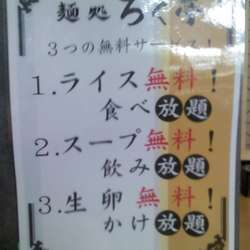 麺処 ろく
3つの無料サービス!
1.ライス無料!
食べ放題
2.スープ無料!
飲み放題
3.生卵無料!
かけ放題